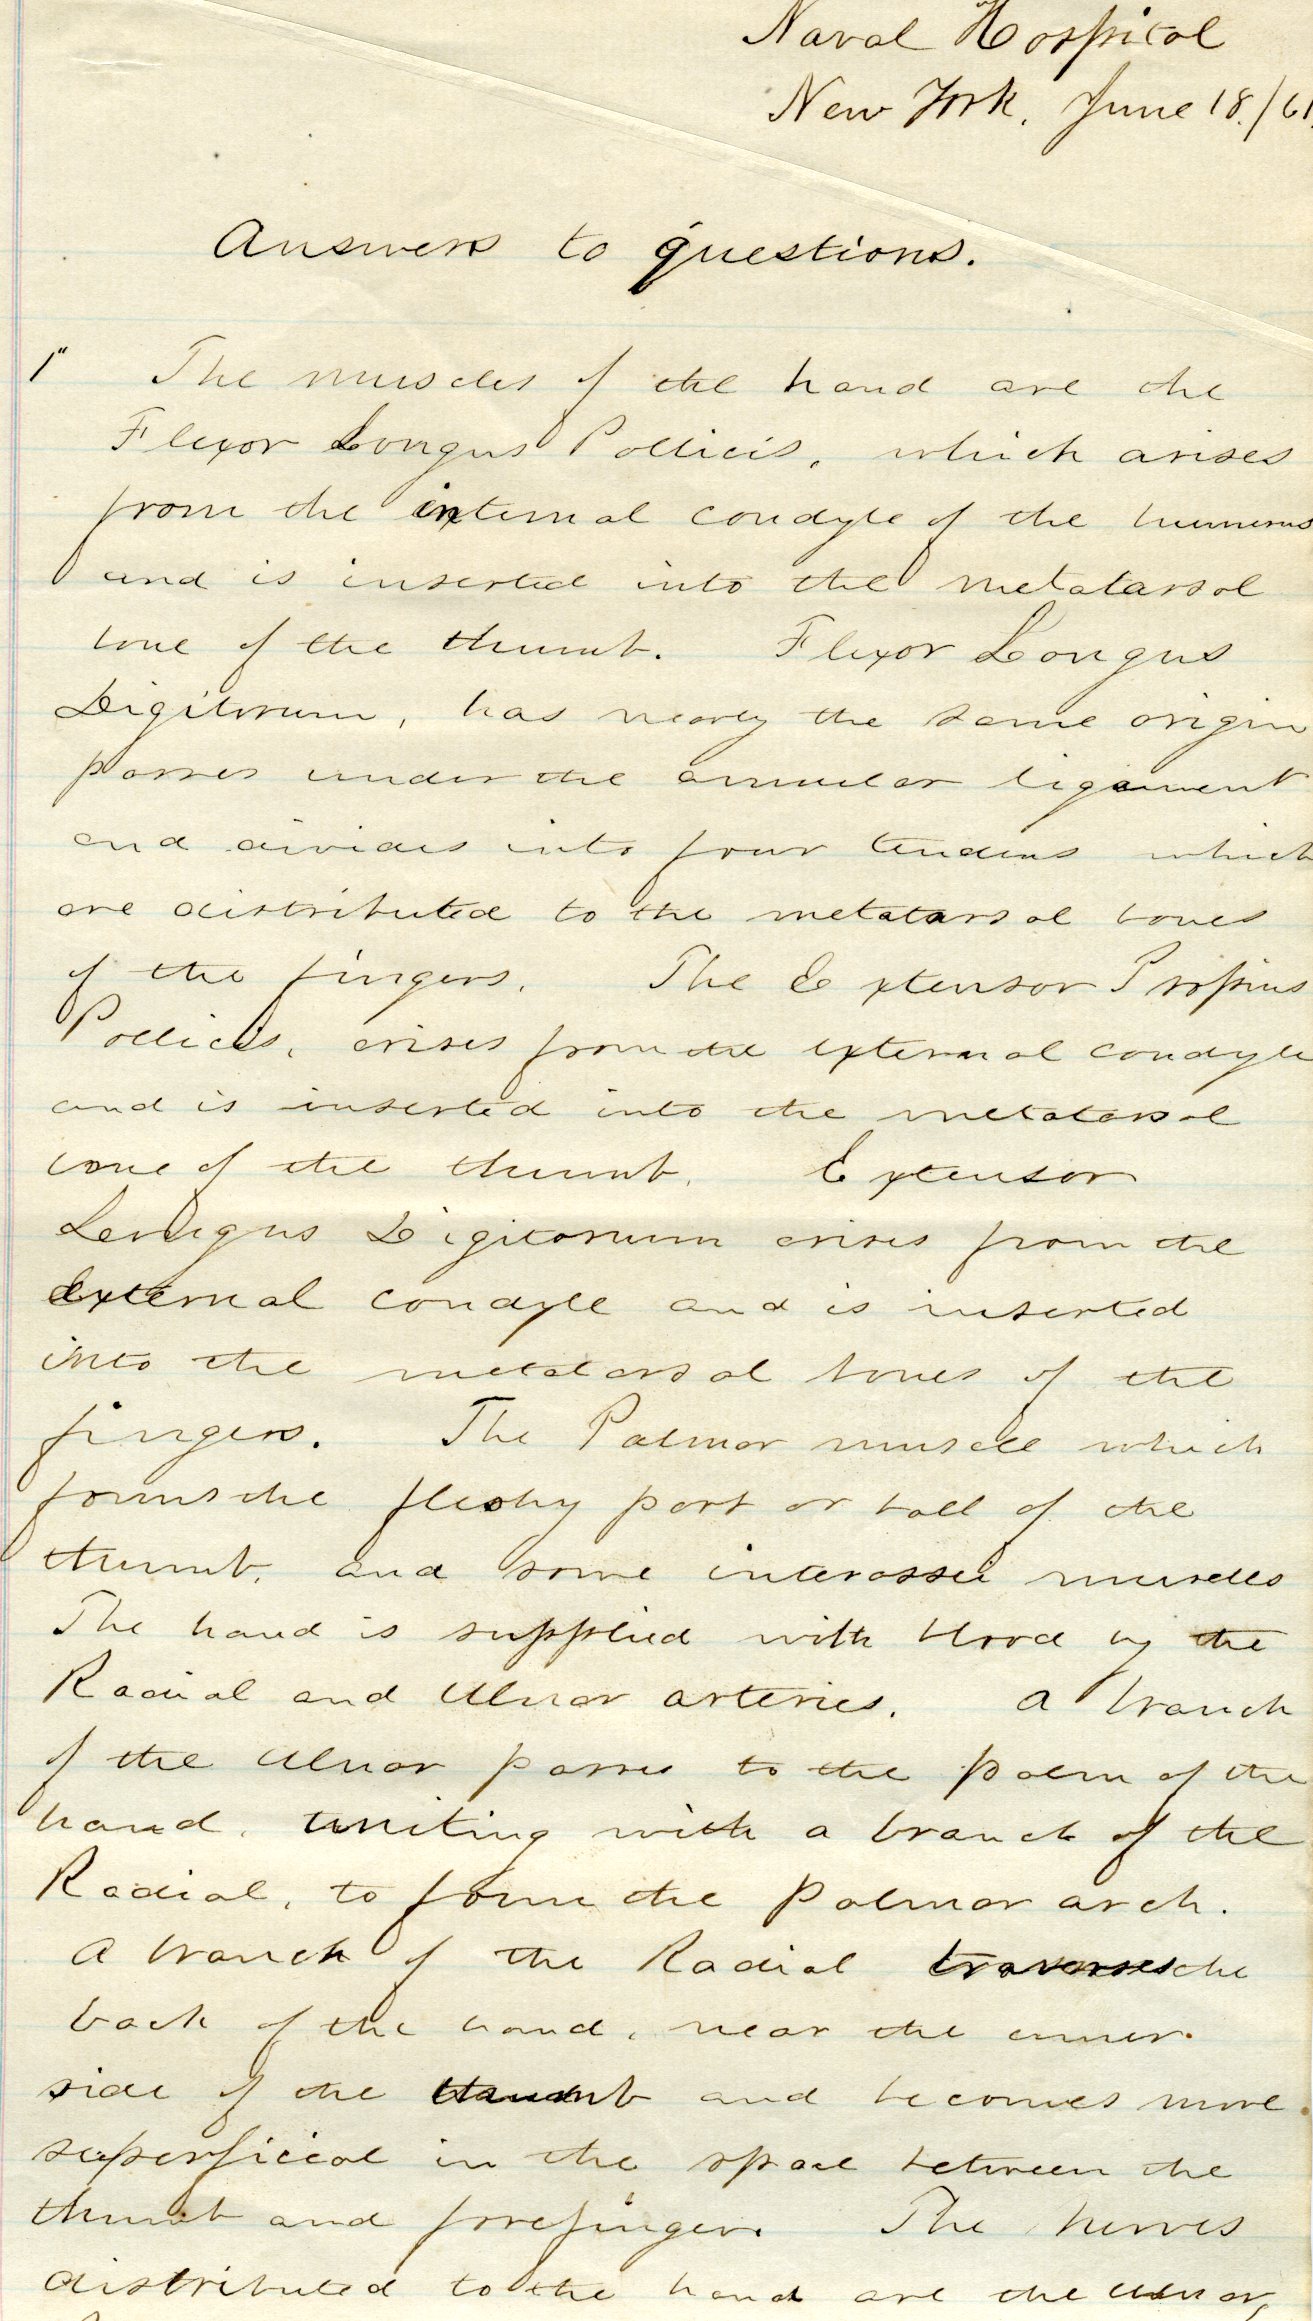 Naval Hospital
New York. June 18./61.
Answers to questions.
1" The muscles of the hand are the
Flexor Longus Pollicis, which arises
from the internal condyle of the humerus
and is inserted into the metatarsal
bone of the thumb. Flexor Longus
Digitorum, has nearly the same origin
passes under the annular ligament
and divides into four tendons which
are distributed to the metatarsal bones
of the fingers. The Extensor Propius
Pollicis, arises from the external condyle
and is inserted into the metatarsal
bone of the thumb. Extensor
Longus Digitorum arises from the
external condyle and is inserted
into the metatarsal bones of the
fingers. The Palmar muscle which
forms the fleshy part or ball of the
thumb, and some interossei muscles
The hand is supplied with blood by the
Radial and Ulnar arteries. A branch
of the Ulnar passes to the palm of the
hand, uniting with a branch of the
Radial, to form the palmar arch.
A branch of the Radial traverses the
back of the hand, near the inner
side of the thumb and becomes more
superficial in the space between the
thumb and forefinger. The nerves
distributed to the hand are the Ulnar,